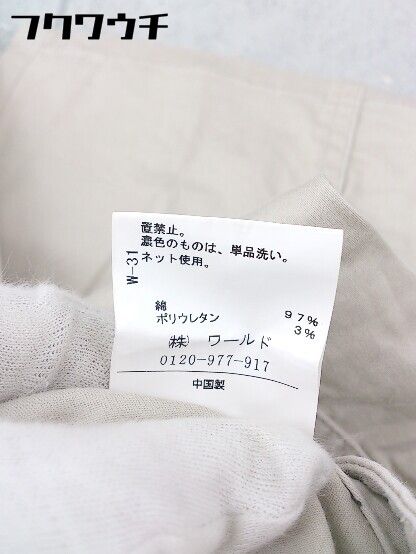 フクワウチ
置禁止。
濃色のものは、単品洗い。
ネット使用。
W-31
綿 97%
ポリウレタン 3%
㈱ ワールド
0120-977-917
中国製